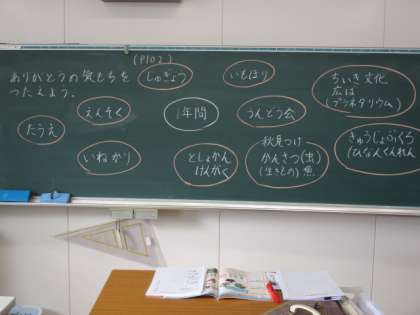 (P102)
ありがとうの気もちを
つたえよう。
じゅぎょう
いもほり
ちいき文化
広は
(プラネタリウム)
えんそく
1年間
うんどう会
たうえ
いねかり
としょかん
けんがく
秋見つけ
かんさつ(虫)
(生きもの)魚
きゅうしょぶくろ
(ひなんくんれん)